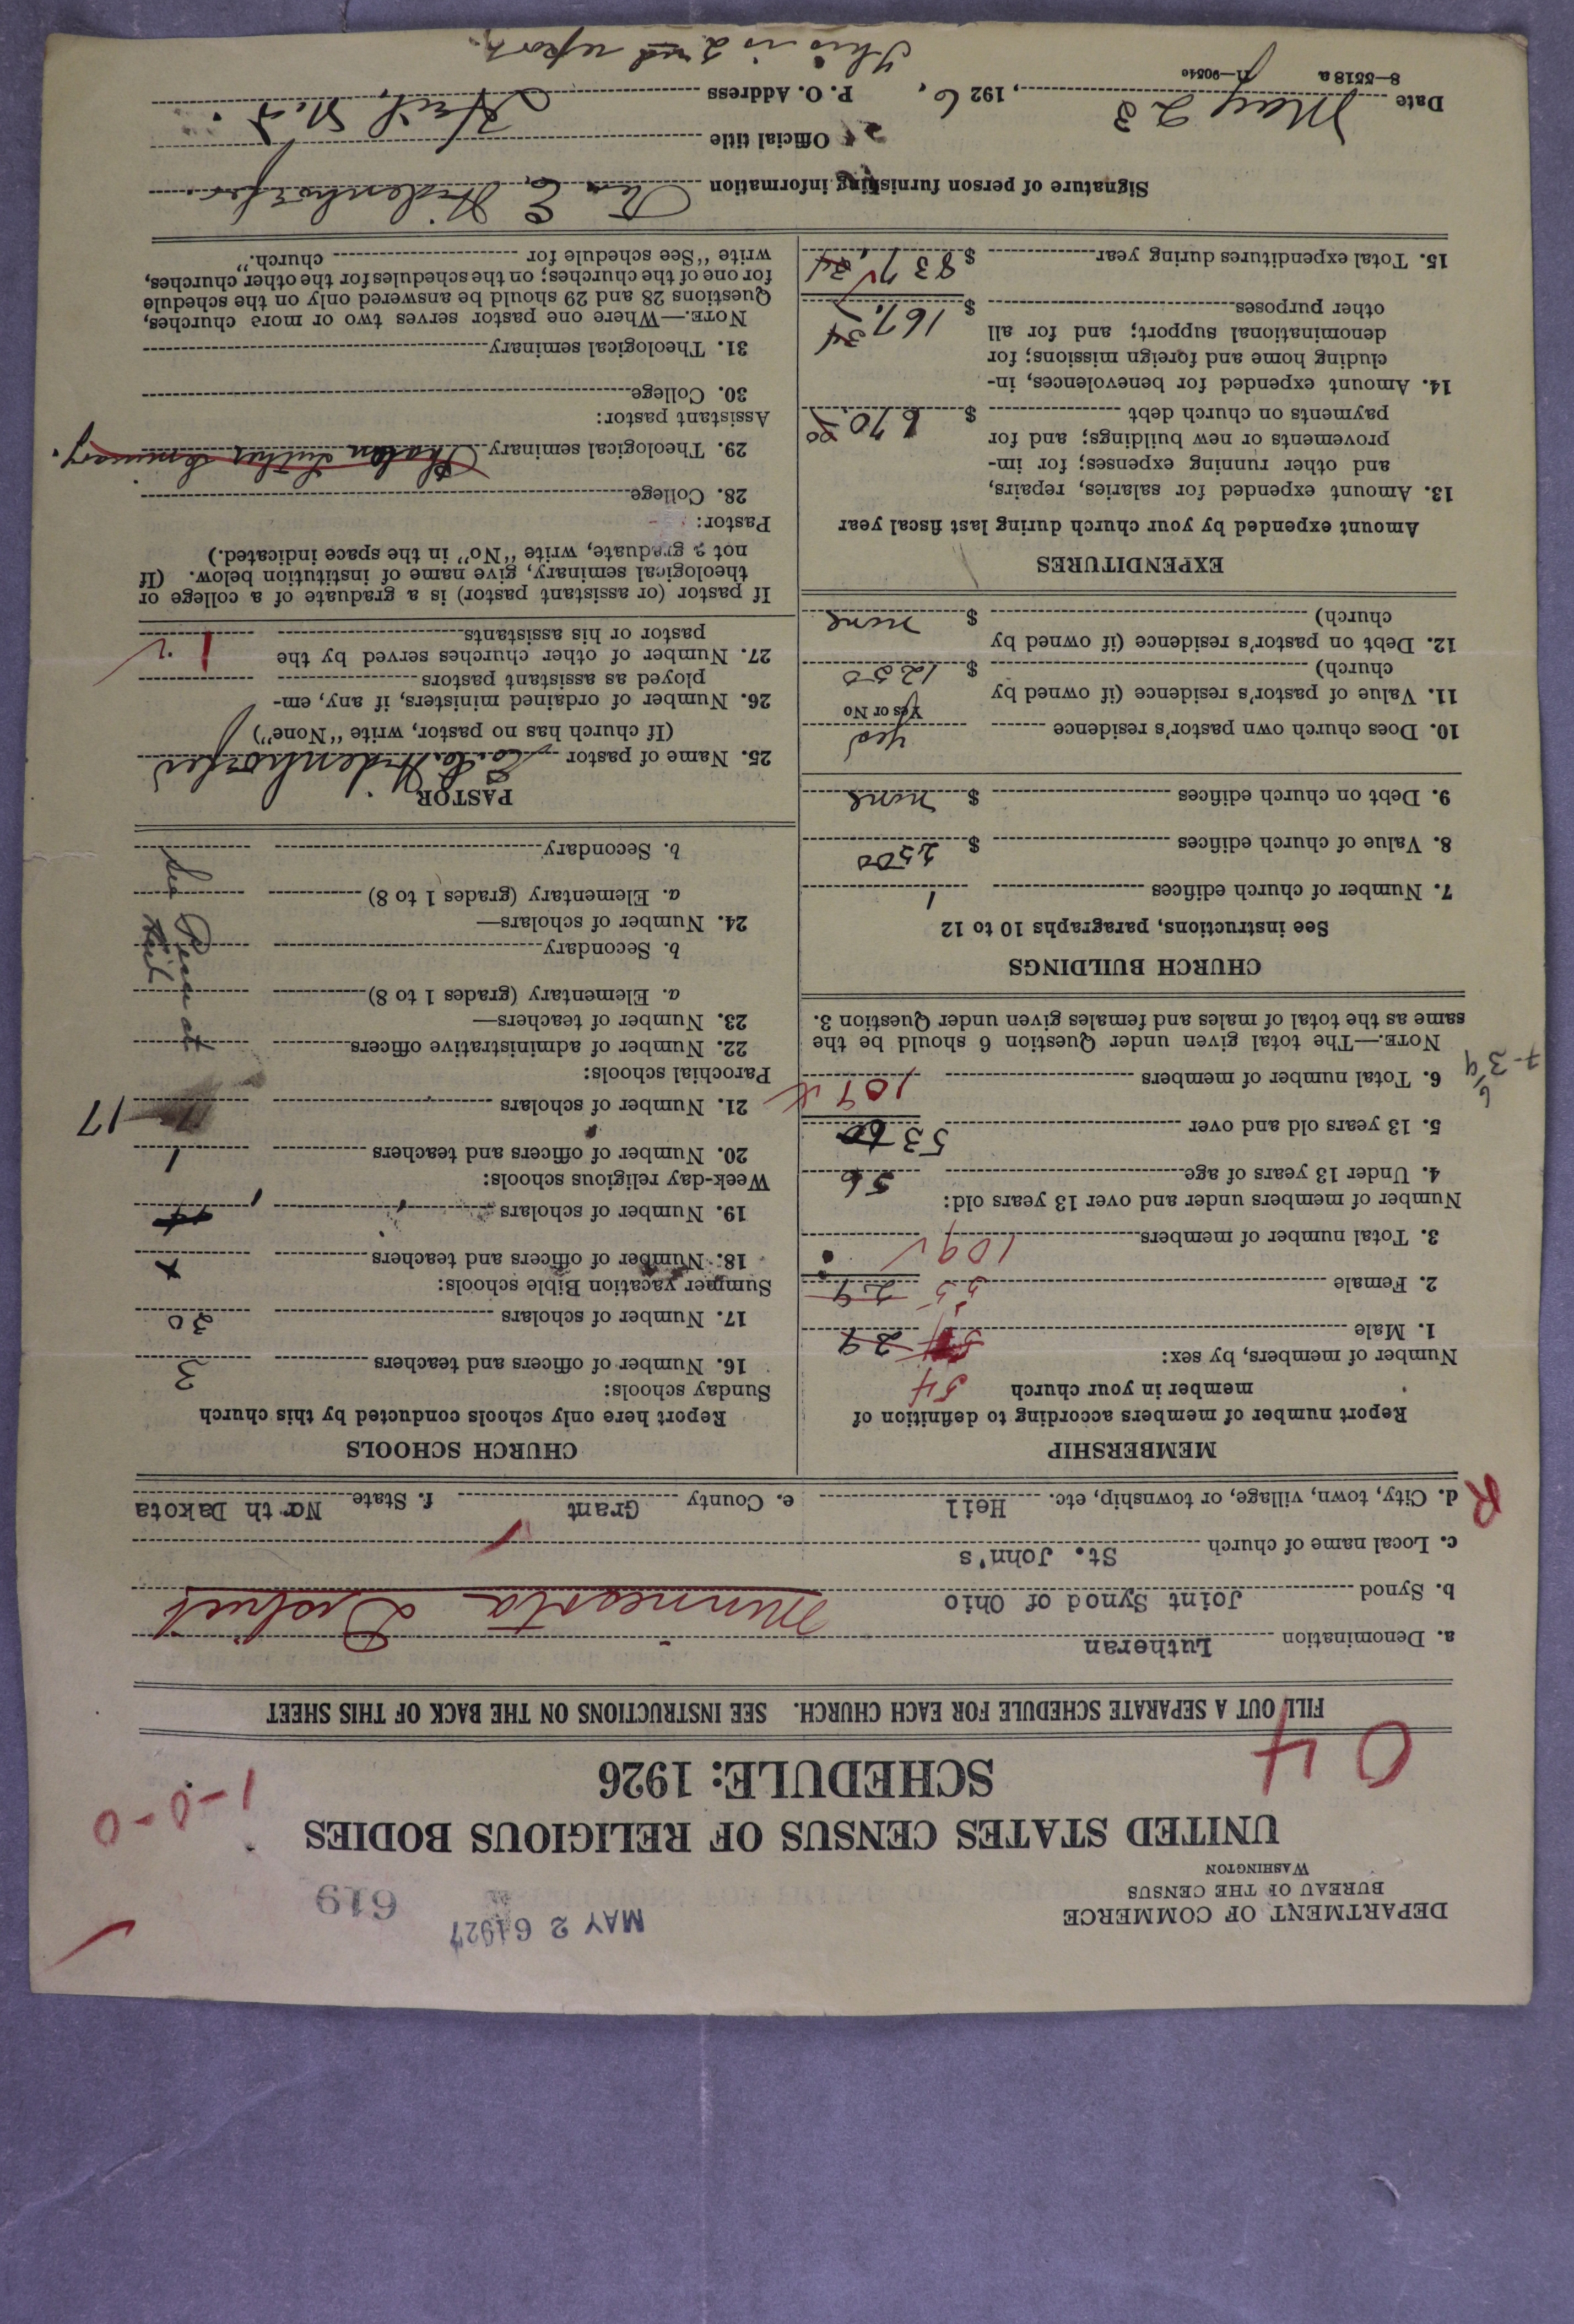 DEPARTMENT OF COMMERCE
BUREAU OF THE CENSUS
WASHINGTON
MAY 2 6 1927
619
UNITED STATES CENSUS OF RELIGIOUS BODIES
SCHEDULE: 1926
0 4
1-0-0
FILL OUT A SEPARATE SCHEDULE FOR EACH CHURCH. SEE INSTRUCTIONS ON THE BACK OF THIS SHEET
a. Denomination Lutheran
b. Synod Joint Synod of Ohio Minnesota District
c. Local name of church St. John's
R
d. City, town, village, or township, etc. Heil e. County Grant f. State North Dakota
MEMBERSHIP
Report number of members according to definition of
member in your church
Number of members, by sex:
54
1. Male 29
2. Female 55 29
3. Total number of members 109
Number of members under and over 13 years old:
4. Under 13 years of age 56
5. 13 years old and over 53 60
6. Total number of members 109
NOTE.—The total given under Question 6 should be the
same as the total of males and females given under Question 3.
CHURCH BUILDINGS
See instructions, paragraphs 10 to 12
7. Number of church edifices 1
8. Value of church edifices $ 2500
9. Debt on church edifices $ none
10. Does church own pastor's residence yes
Yes or No
11. Value of pastor's residence (if owned by
church) $ 1200
12. Debt on pastor's residence (if owned by
church) $ none
EXPENDITURES
Amount expended by your church during last fiscal year
13. Amount expended for salaries, repairs,
and other running expenses; for im-
provements or new buildings; and for
payments on church debt $ 670.00
14. Amount expended for benevolences, in-
cluding home and foreign missions; for
denominational support; and for all
other purposes $ 167.34
15. Total expenditures during year $ 837.34
CHURCH SCHOOLS
Report here only schools conducted by this church
Sunday schools:
16. Number of officers and teachers 3
17. Number of scholars 30
Summer vacation Bible schools:
18. Number of officers and teachers
19. Number of scholars
Week-day religious schools:
20. Number of officers and teachers 1
21. Number of scholars 17
Parochial schools:
22. Number of administrative officers
23. Number of teachers—
a. Elementary (grades 1 to 8)
b. Secondary
24. Number of scholars—
a. Elementary (grades 1 to 8)
b. Secondary
PASTOR
25. Name of pastor
(If church has no pastor, write "None")
26. Number of ordained ministers, if any, em-
ployed as assistant pastors
27. Number of other churches served by the
pastor or his assistants 1
If pastor (or assistant pastor) is a graduate of a college or
theological seminary, give name of institution below. (If
not a graduate, write "No" in the space indicated.)
Pastor:
28. College
29. Theological seminary Luther Seminary.
Assistant pastor:
30. College
31. Theological seminary
NOTE.—Where one pastor serves two or more churches,
Questions 28 and 29 should be answered only on the schedule
for one of the churches; on the schedules for the other churches,
write "See schedule for church."
Signature of person furnishing information
Official title
Date May 23, 1926, P. O. Address Heil, N.D.
8—5518a 11—9054c
This is 2nd report